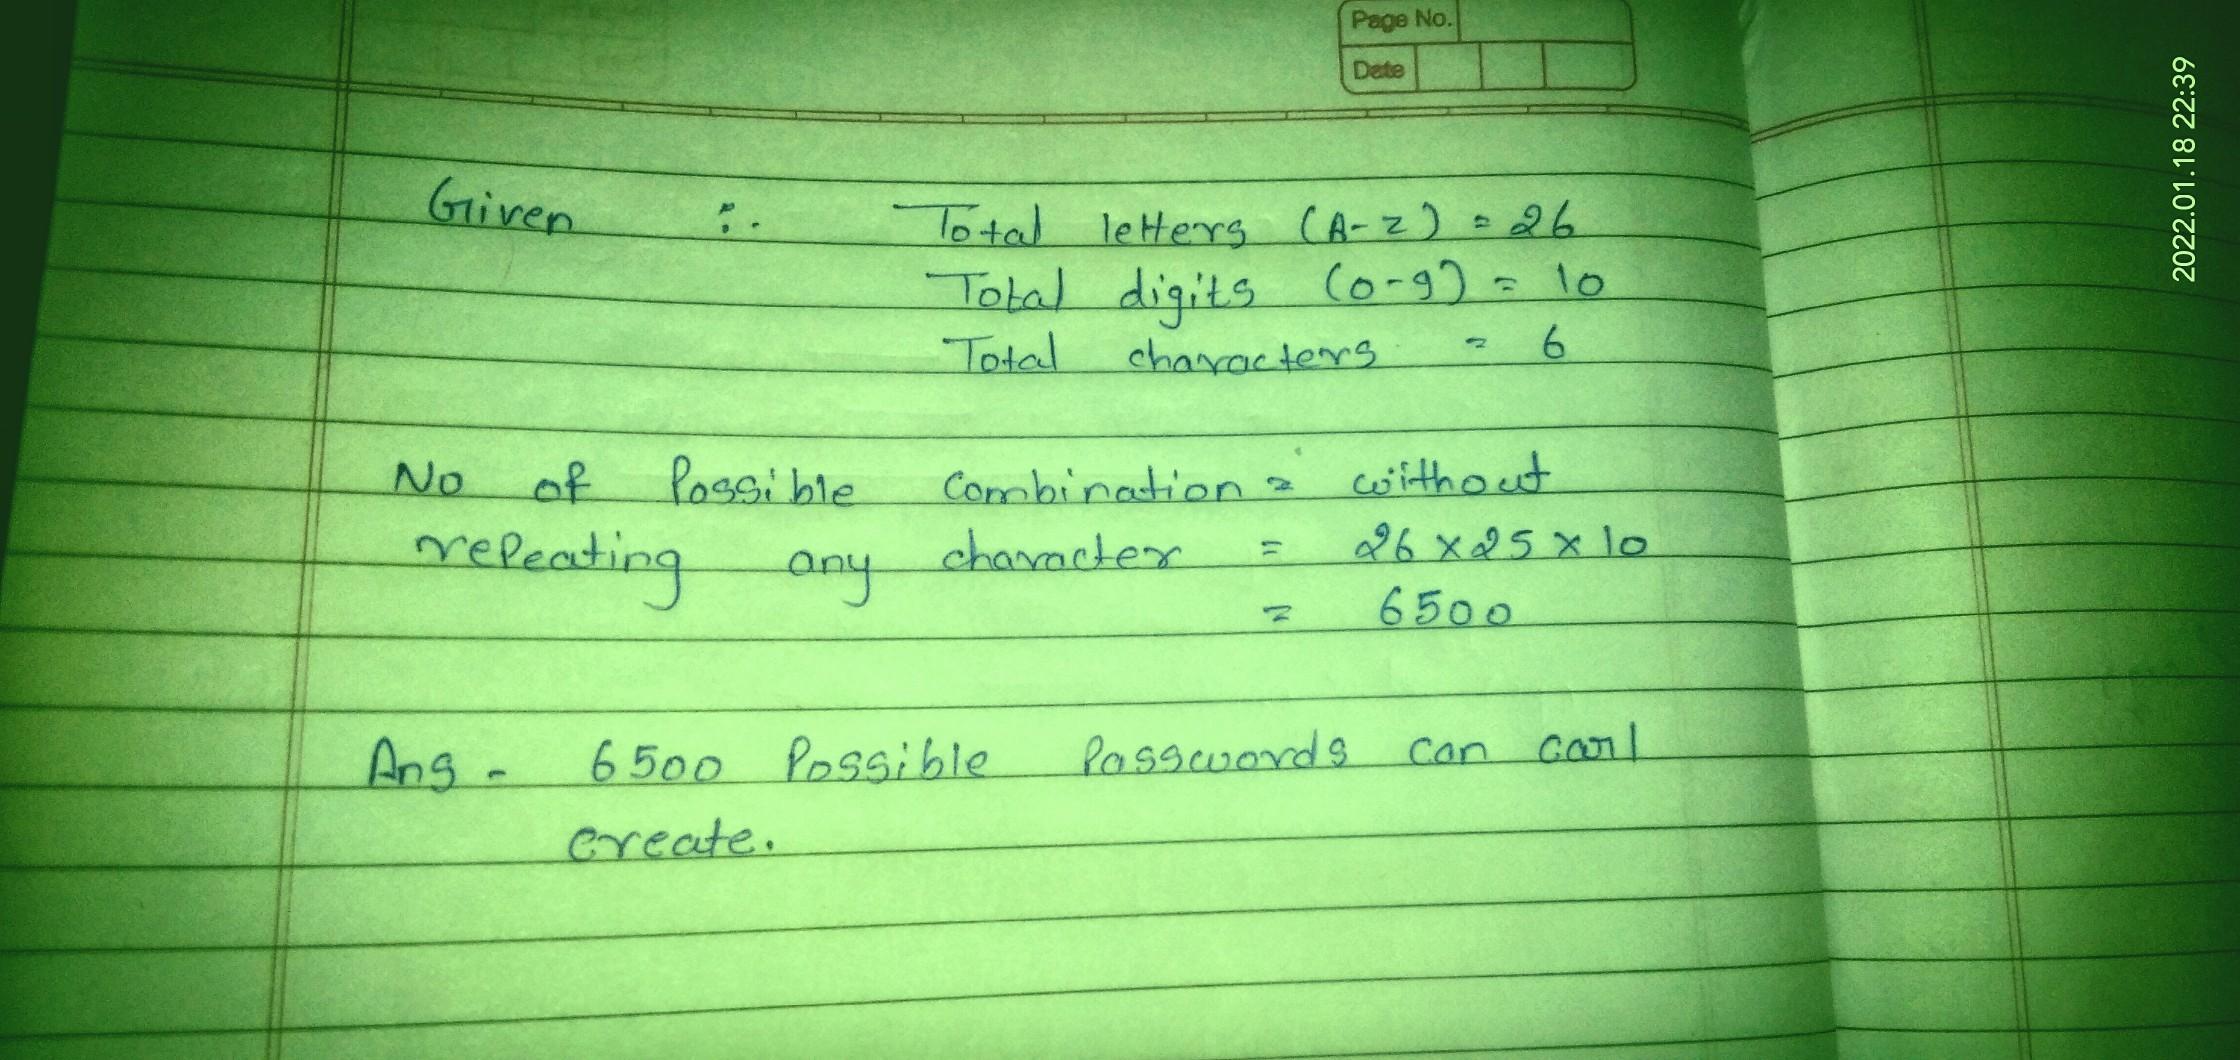 Page No.
Date
2022.01.18 22:39
Given :. Total letters (A-Z) = 26
Total digits (0-9) = 10
Total characters = 6
No of Possible Combination = without
repeating any character = 26 x 25 x 10
= 6500
Ans - 6500 Possible Passwords can
create.